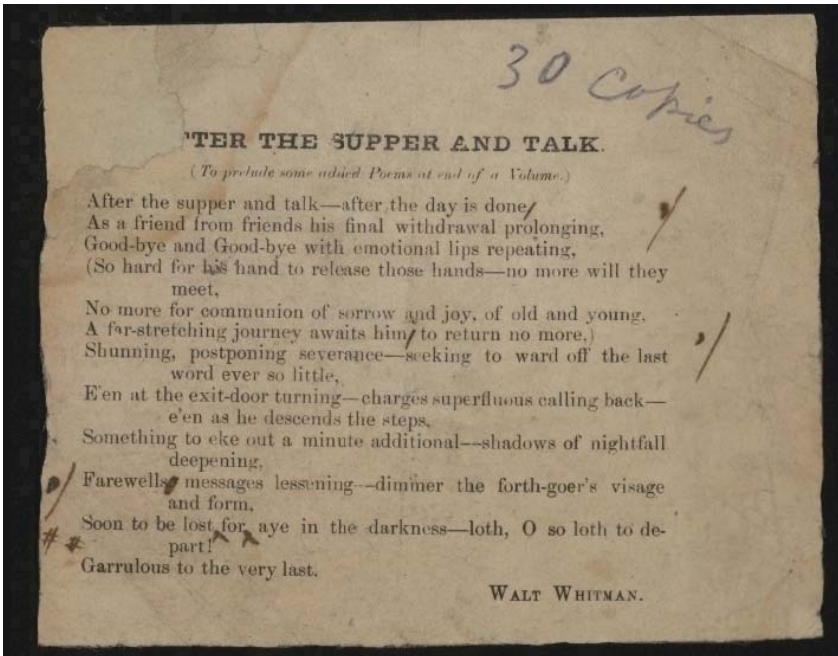 30 copies
TER THE SUPPER AND TALK.
(To prelude some added Poems at end of a Volume.)
After the supper and talk—after the day is done/
As a friend from friends his final withdrawal prolonging,
Good-bye and Good-bye with emotional lips repeating,
(So hard for his hand to release those hands—no more will they
meet,
No more for communion of sorrow and joy, of old and young,
A far-stretching journey awaits him/ to return no more,)
Shunning, postponing severance—seeking to ward off the last
word ever so little,
E'en at the exit-door turning—charges superfluous calling back—
e'en as he descends the steps,
Something to eke out a minute additional—shadows of nightfall
deepening,
Farewells, messages lessening—dimmer the forth-goer's visage
and form,
# # Soon to be lost for aye in the darkness—loth, O so loth to de-
part!
Garrulous to the very last.
WALT WHITMAN.